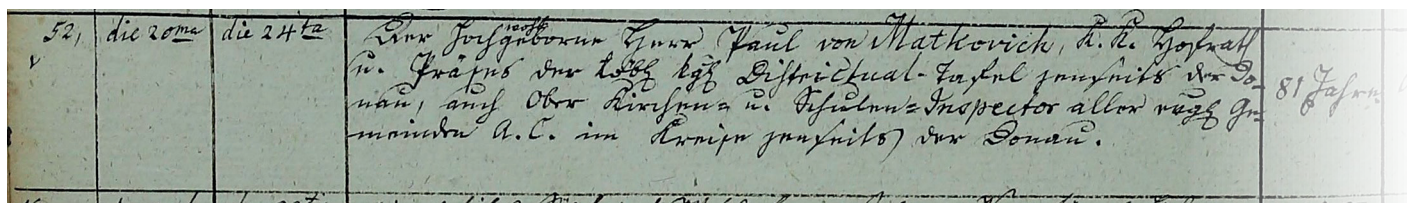 52, die 20ma die 24ta Der Hochwohlgeborne Herr Paul von Matkovich, K. K. Hofrath
u. Präses der löbl kgl Districtual-Tafel jenseits der Do-
nau, auch Ober Kirchen- u. Schulen-Inspector aller evgl Ge-
meinden A. C. im Kreise jenseits der Donau.
81 Jahre